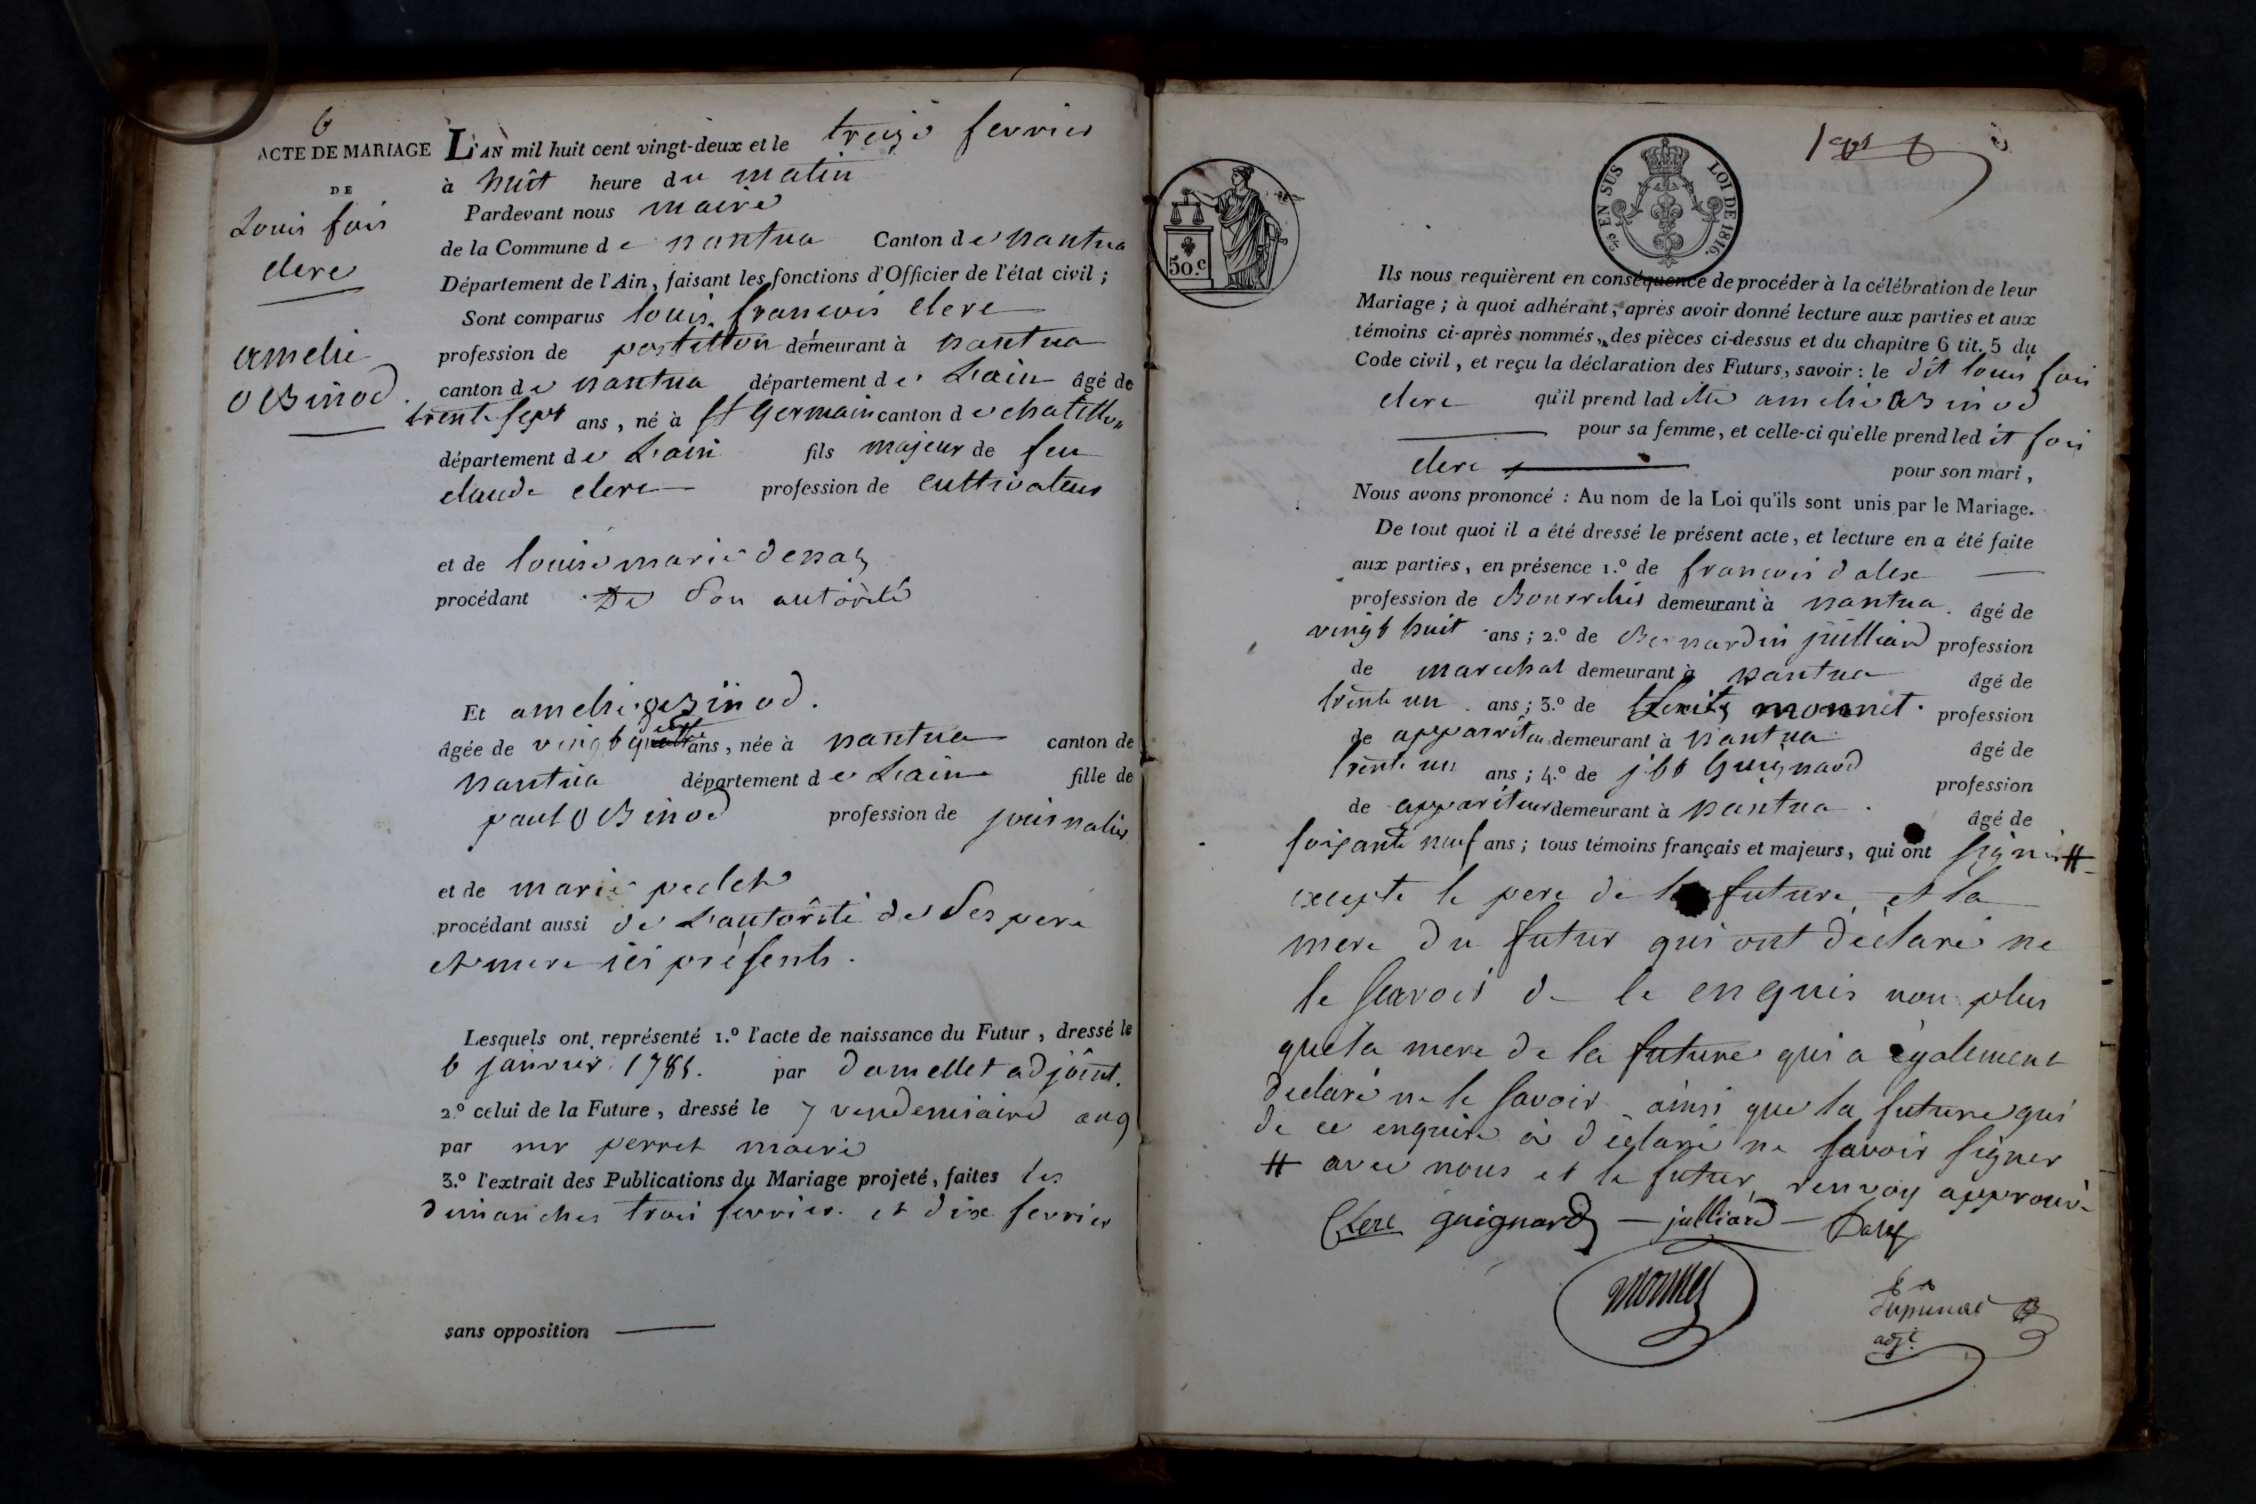 6
ACTE DE MARIAGE
DE
Louis fois
clerc
amelie
oBinod.
L'AN mil huit cent vingt-deux et le treize fevrier
à huit heure du matin
Pardevant nous maire
de la Commune de nantua Canton de nantua
Département de l'Ain, faisant les fonctions d'Officier de l'état civil ;
Sont comparus louis francois clerc
profession de postillon demeurant à nantua
canton de nantua département de L'ain âgé de
trente sept ans, né à St Germain canton de chatillon
département de L'ain fils majeur de feu
claude clerc profession de cultivateur
et de louise marie
procédant De Son autorité
Et amelie oBinod.
âgée de vingt ans, née à nantua canton de
nantua département de L'ain fille de
paul oBinod profession de journalier
et de marie peclet
procédant aussi de L'autorité de Ses pere
et mere ici présents.
Lesquels ont représenté 1.º l'acte de naissance du Futur, dressé le
6 janvier 1785. par damellet adjoint.
2.º celui de la Future, dressé le 7 vendemiaire an 9
par mr perret maire
3.º l'extrait des Publications du Mariage projeté, faites les
dimanches trois fevrier et dix fevrier
sans opposition
50.c
EN SUS
LOI DE 1816.
Ils nous requièrent en conséquence de procéder à la célébration de leur
Mariage ; à quoi adhérant, après avoir donné lecture aux parties et aux
témoins ci-après nommés, des pièces ci-dessus et du chapitre 6 tit. 5 du
Code civil, et reçu la déclaration des Futurs, savoir : le dit louis fois
clerc qu'il prend ladite amelie oBinod
pour sa femme, et celle-ci qu'elle prend ledit fois
clerc pour son mari,
Nous avons prononcé : Au nom de la Loi qu'ils sont unis par le Mariage.
De tout quoi il a été dressé le présent acte, et lecture en a été faite
aux parties, en présence 1.º de francois dalex
profession de Bourrelier demeurant à nantua. âgé de
vingt huit ans ; 2.º de Bernardin juilliard profession
de marechal demeurant à nantua âgé de
trente un ans ; 3.º de monnet. profession
de appariteur demeurant à nantua âgé de
trente un ans ; 4.º de jbt Guignard profession
de appariteur demeurant à nantua. âgé de
soixante neuf ans ; tous témoins français et majeurs, qui ont signés #
excepte le pere de la future et la
mere du futur qui ont déclaré ne
le scavoir de le enquis non plus
que la mere de la future qui a également
déclaré ne le savoir ainsi que la future qui
de ce enquise a déclaré ne savoir signer
# avec nous et le futur, renvoy approuvé
Clerc guignard julliard Dalex
monnet
adjt.